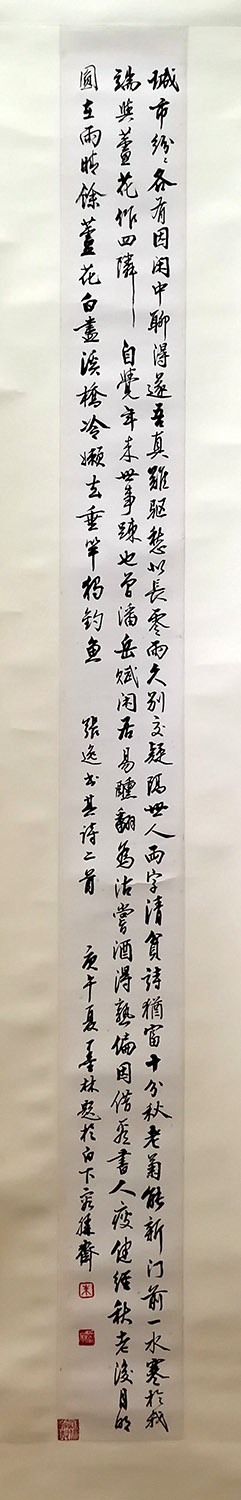 城市纷纷各有因闲中聊得遂吾真难驱愁似长零雨久别交疑隔世人两字清贫诗犹富十分秋老菊能新门前一水寒於我
端与芦花作四隣 自觉年来世事疎也曾潘岳赋闲居易醺翻为沽尝酒得熟偏因借看书人瘦健经秋老后月明
圆在雨晴馀芦花白尽溪桥冷嬾去垂竿独钓鱼 张逸书其诗二首 庚午夏 林题於白下